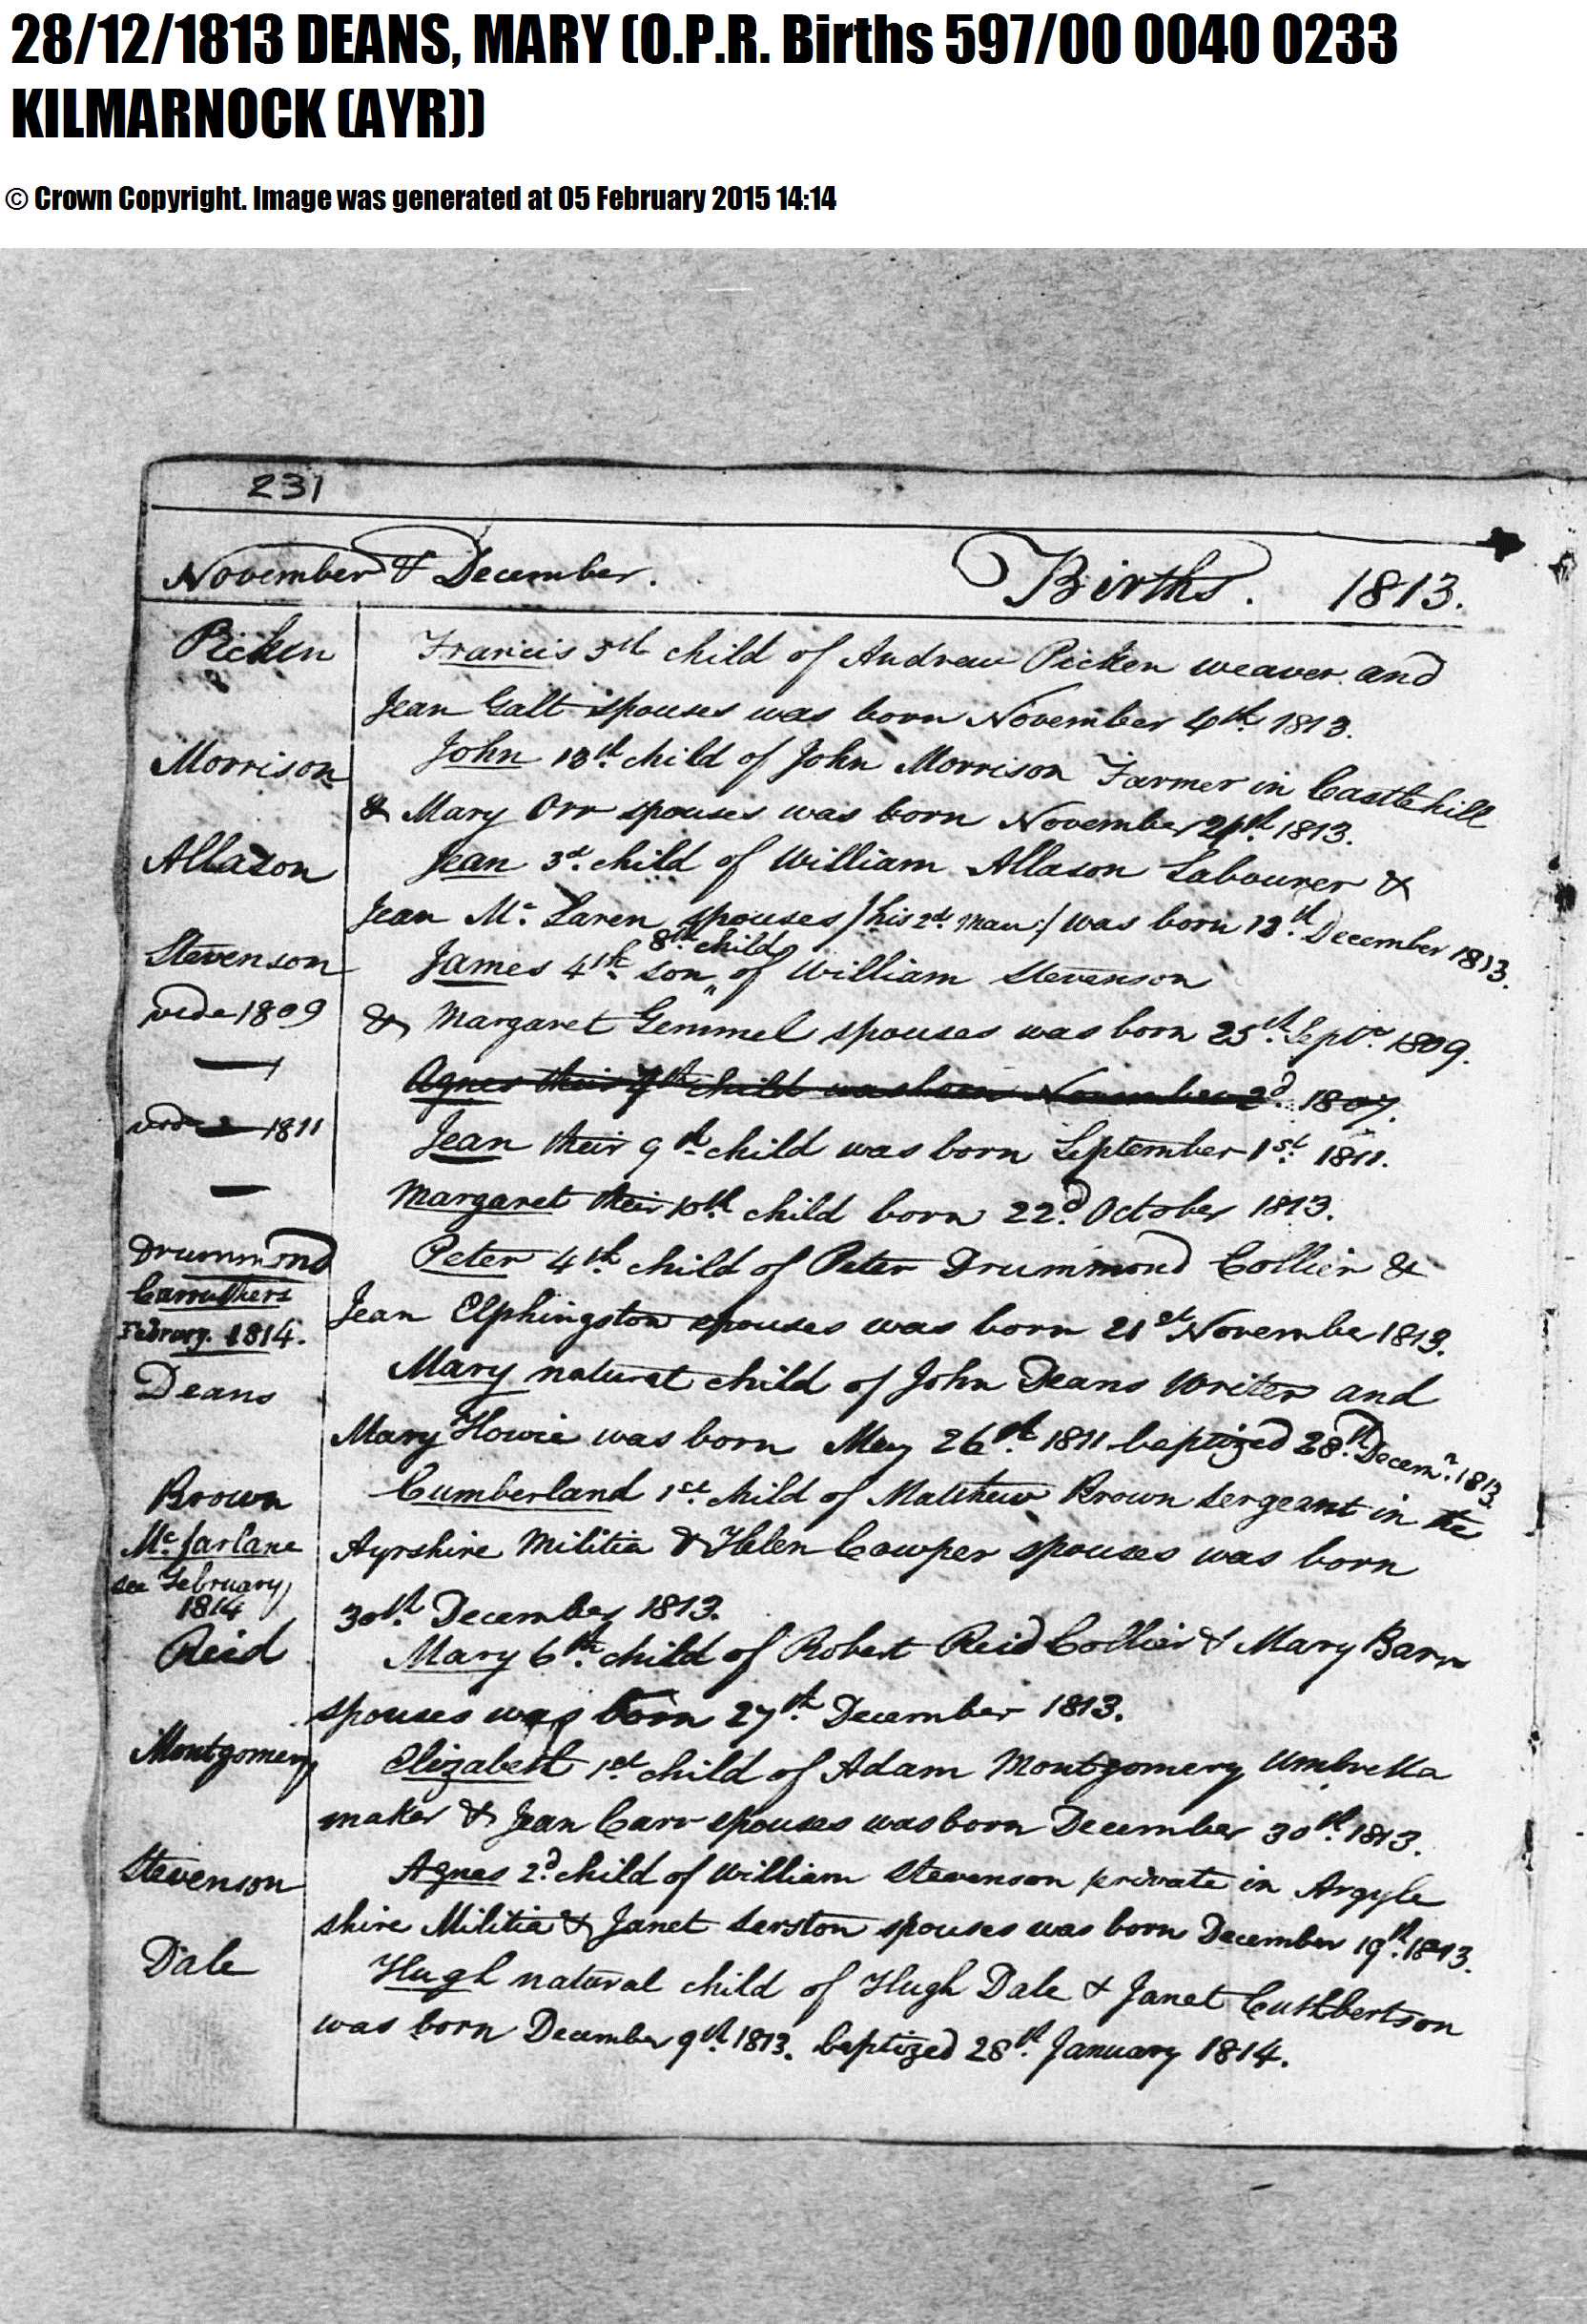 28/12/1813 DEANS, MARY (O.P.R. Births 597/00 0040 0233
KILMARNOCK (AYR))
© Crown Copyright. Image was generated at 05 February 2015 14:14
231
November & December. Births. 1813.
Picken Francis 5th child of Andrew Picken weaver and
Jean Galt spouses was born November 4th 1813.
Morrison John 13th child of John Morrison Farmer in Castlehill
& Mary Orr spouses was born November 1813.
Allason Jean 3d. child of William Allason Labourer &
Jean Mc. Laren spouses / his 2d. Marr: / was born 13th December 1813.
8th child
Stevenson James 4th son " of William Stevenson
vide 1809 & Margaret Gemmel spouses was born 25th Septr. 1809.
— Agnes their 7th child was born November 2d. 1807.
vide 1811 Jean their 9th child was born September 1st. 1811.
— Margaret their 10th child born 22d. October 1813.
Drummond Peter 4th child of Peter Drummond Collier &
Carruthers
Februry. 1814. Jean Elphingston spouses was born 21st November 1813.
Deans Mary natural child of John Deans Writer and
Mary Howie was born May 26th. 1811 baptized 28th Decemr. 1813.
Brown Cumberland 1st. child of Matthew Brown Sergeant in the
Mc. farlane Ayrshire Militia & Helen Cowper spouses was born
see February
1814 30th. December 1813.
Reid Mary 6th. child of Robert Reid Collier & Mary Barr
spouses was born 27th. December 1813.
Montgomery Elizabeth 1st. child of Adam Montgomery Umbrella
maker & Jean Carr spouses was born December 30th. 1813.
Stevenson Agnes 2d. child of William Stevenson private in Argyle
shire Militia & Janet spouses was born December 19th. 1813.
Dale Hugh natural child of Hugh Dale & Janet Cuthbertson
was born December 9th. 1813. baptized 28th. January 1814.